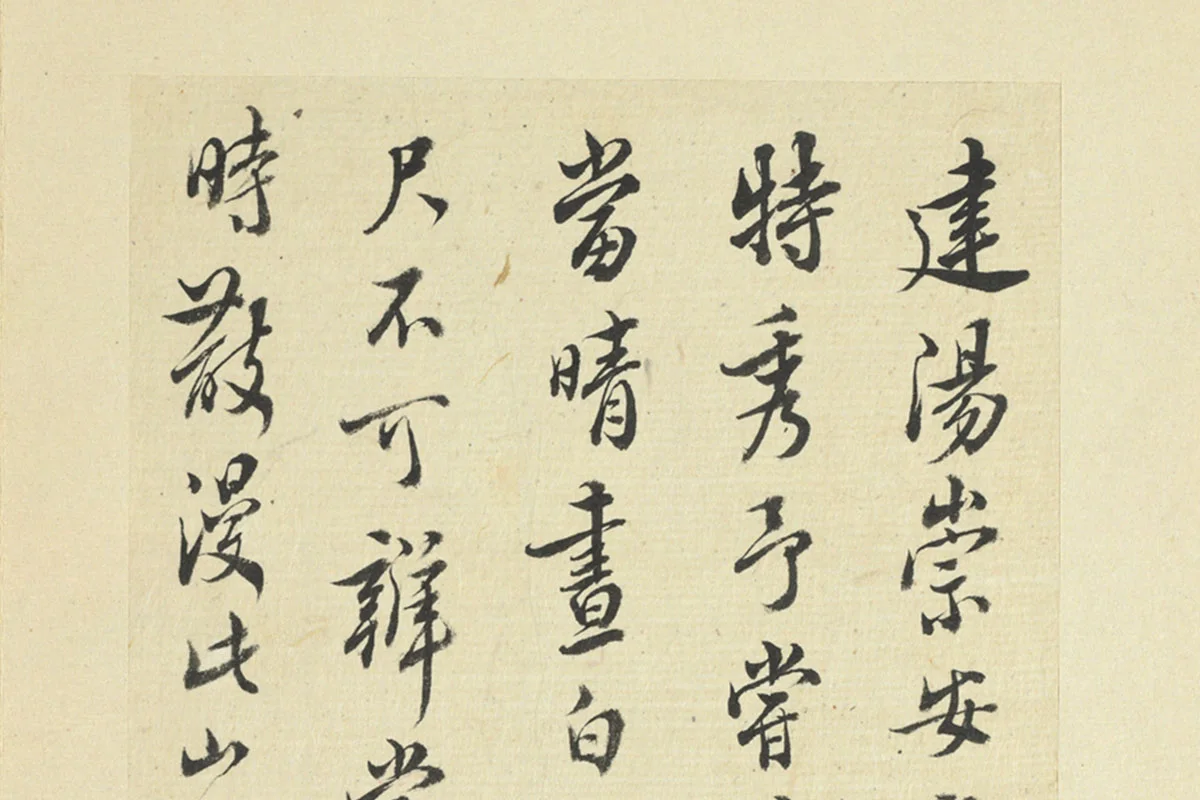 建陽崇安
特秀予嘗
當晴晝白
尺不可辨
時散漫此山